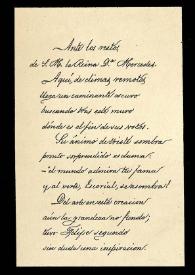 Ante los restos
de S. M. la Reina Dª Mercedes.
Aquí, de climas remotos
llega un caminante oscuro
buscando tras este muro
donde es el fin de sus votos.
Su ánimo de triste sombra
pronto sorprendido exclama
el mundo admira tu fama
y al verte, Escorial, se asombra!
Del arte en esta creación
aún la grandeza no fundo;
tuvo Felipe segundo
sin duda una inspiración.